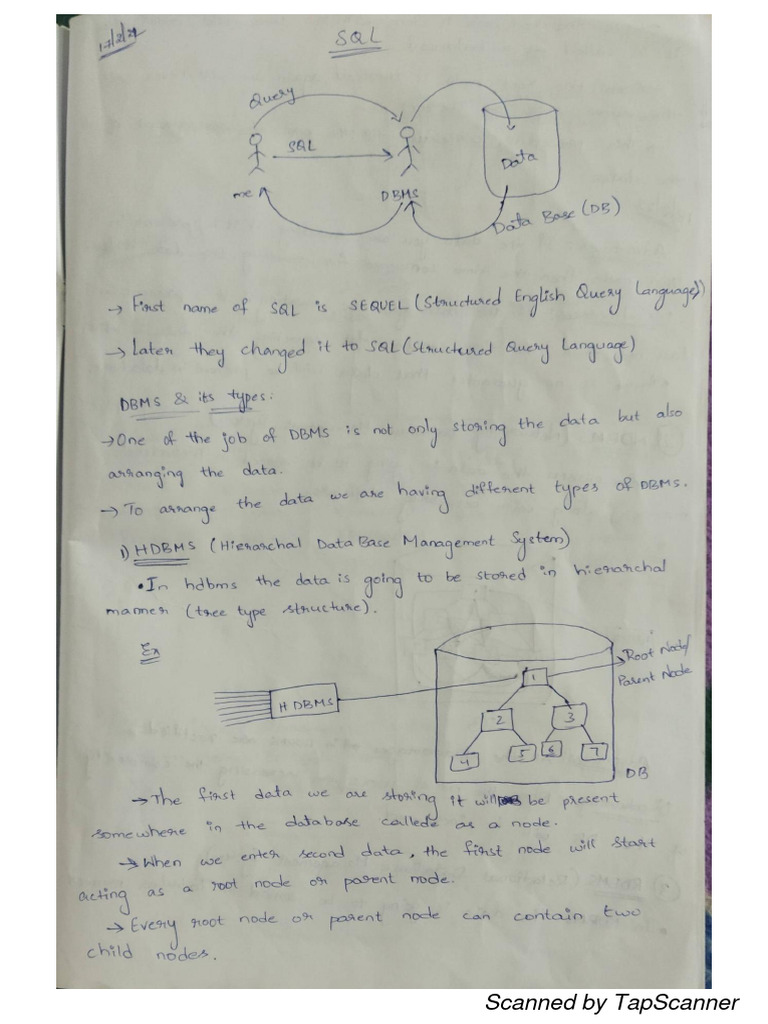 17/2/24
SQL
Query
SQL
Data
me
DBMS
Data Base (DB)
→ First name of SQL is SEQUEL (Structured English Query Language))
→ Later they changed it to SQL (Structured Query Language)
DBMS & its types:
→ One of the job of DBMS is not only storing the data but also
arranging the data.
→ To arrange the data we are having different types of DBMS.
1) HDBMS (Hierarchal DataBase Management System)
• In hdbms the data is going to be stored in hierarchal
manner (tree type structure).
Ex
Root Node/
Parent Node
H DBMS
1
2 3
4 5 6 7
DB
→ The first data we are storing it will be present
somewhere in the database callede as a node.
→ When we enter second data, the first node will start
acting as a root node or parent node.
→ Every root node or parent node can contain two
child nodes.
Scanned by TapScanner